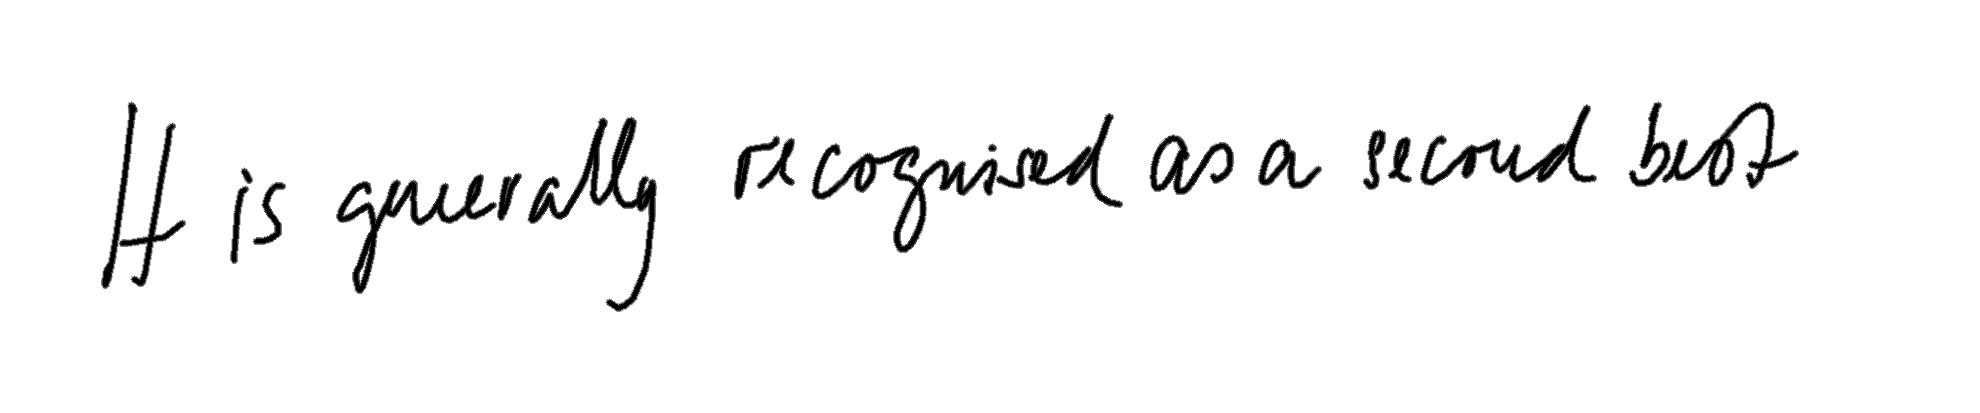 It is generally recognised as a second best